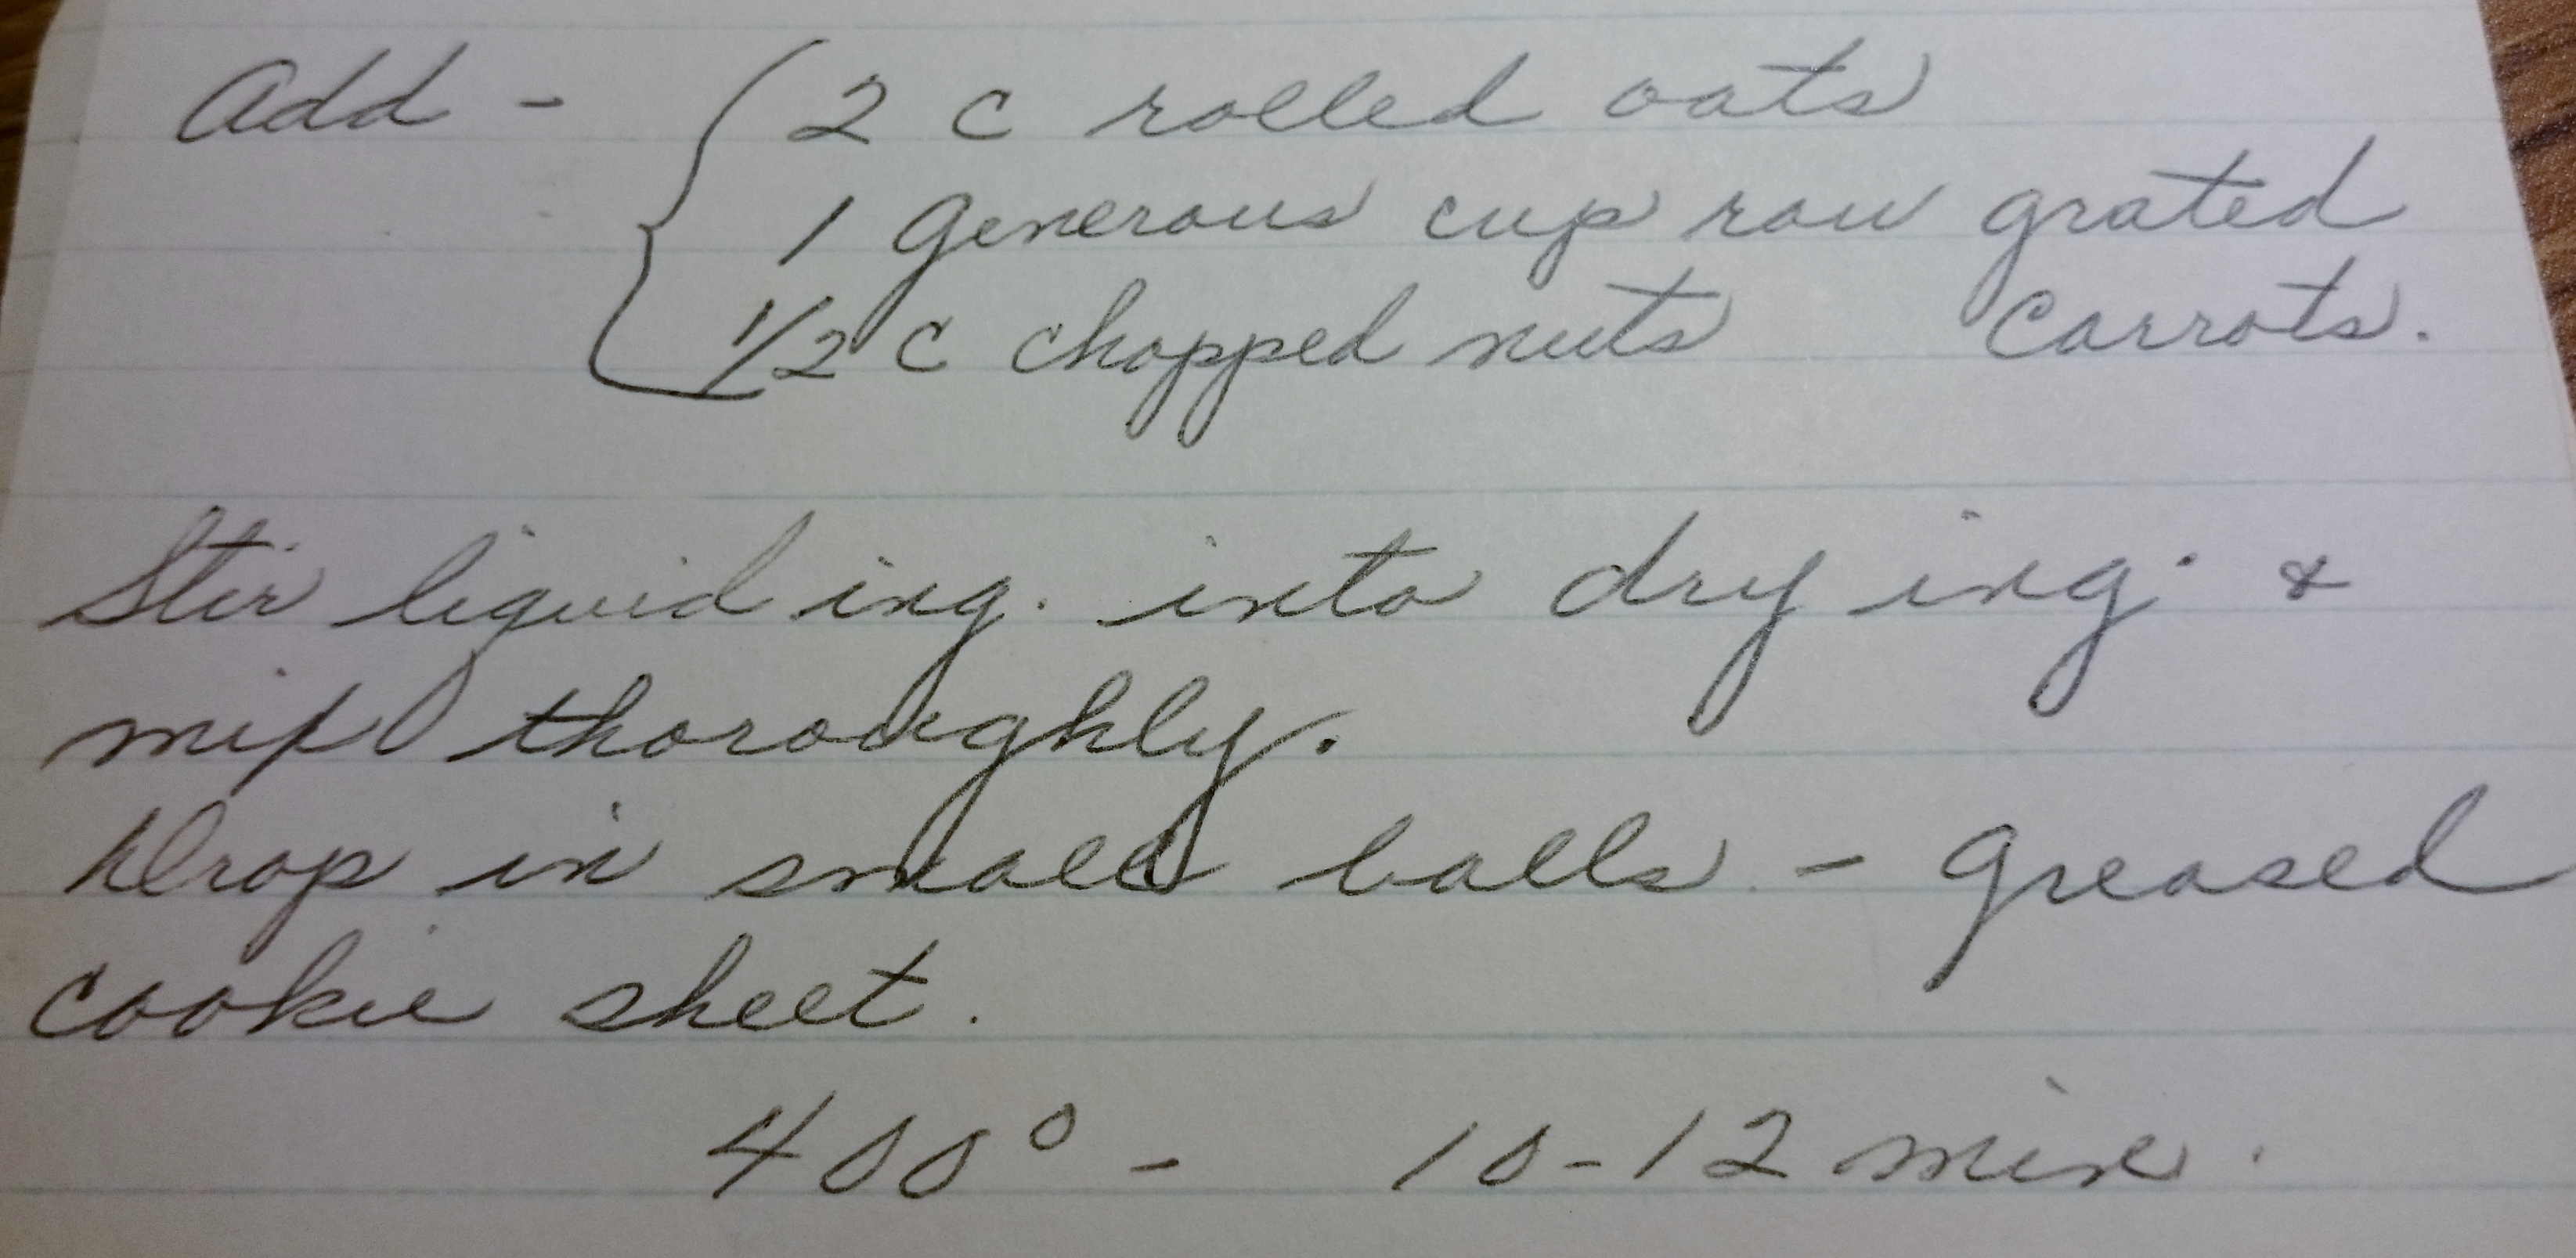 Add - { 2 c rolled oats
1 generous cup raw grated
1/2 c chopped nuts carrots.
Stir liquid ing. into dry ing. &
mix thoroughly.
Drop in small balls - greased
cookie sheet.
400° - 10-12 min.